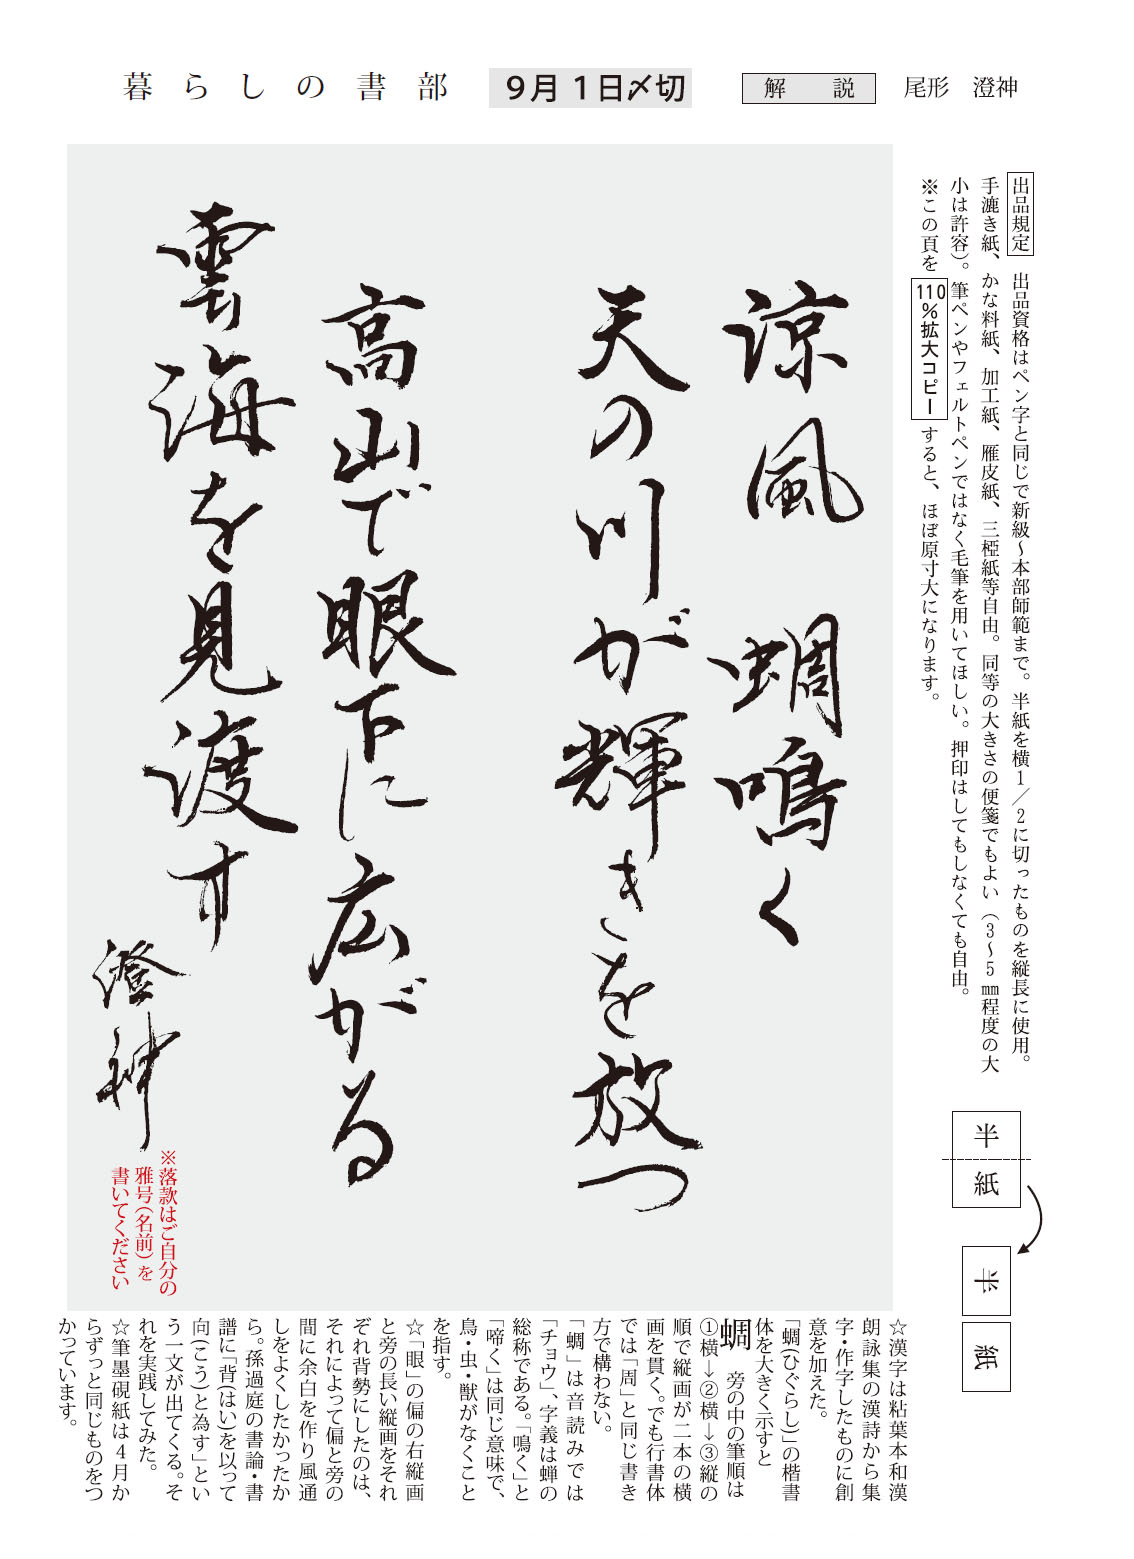 暮らしの書部
9月1日〆切
解 説
尾形 澄神
出品規定 出品資格はペン字と同じで新級〜本部師範まで。半紙を横1/2に切ったものを縦長に使用。
手漉き紙、かな料紙、加工紙、雁皮紙、三椏紙等自由。同等の大きさの便箋でもよい(3〜5㎜程度の大
小は許容)。筆ペンやフェルトペンではなく毛筆を用いてほしい。押印はしてもしなくても自由。
※この頁を110%拡大コピーすると、ほぼ原寸大になります。
半紙
半
紙
涼風 蜩鳴く
天の川が輝きを放つ
高山で眼下に広がる
雲海を見渡す
澄神
※落款はご自分の
雅号(名前)を
書いてください
☆漢字は粘葉本和漢
朗詠集の漢詩から集
字・作字したものに創
意を加えた。
「蜩(ひぐらし)」の楷書
体を大きく示すと
蜩 旁の中の筆順は
①横→②横→③縦の
順で縦画が二本の横
画を貫く。でも行書体
では「周」と同じ書き
方で構わない。
「蜩」は音読みでは
「チョウ」、字義は蝉の
総称である。「鳴く」と
「啼く」は同じ意味で、
鳥・虫・獣がなくこと
を指す。
☆「眼」の偏の右縦画
と旁の長い縦画をそれ
ぞれ背勢にしたのは、
それによって偏と旁の
間に余白を作り風通
しをよくしたかったか
ら。孫過庭の書論・書
譜に「背(はい)を以って
向(こう)と為す」とい
う一文が出てくる。そ
れを実践してみた。
☆筆墨硯紙は4月か
らずっと同じものをつ
かっています。